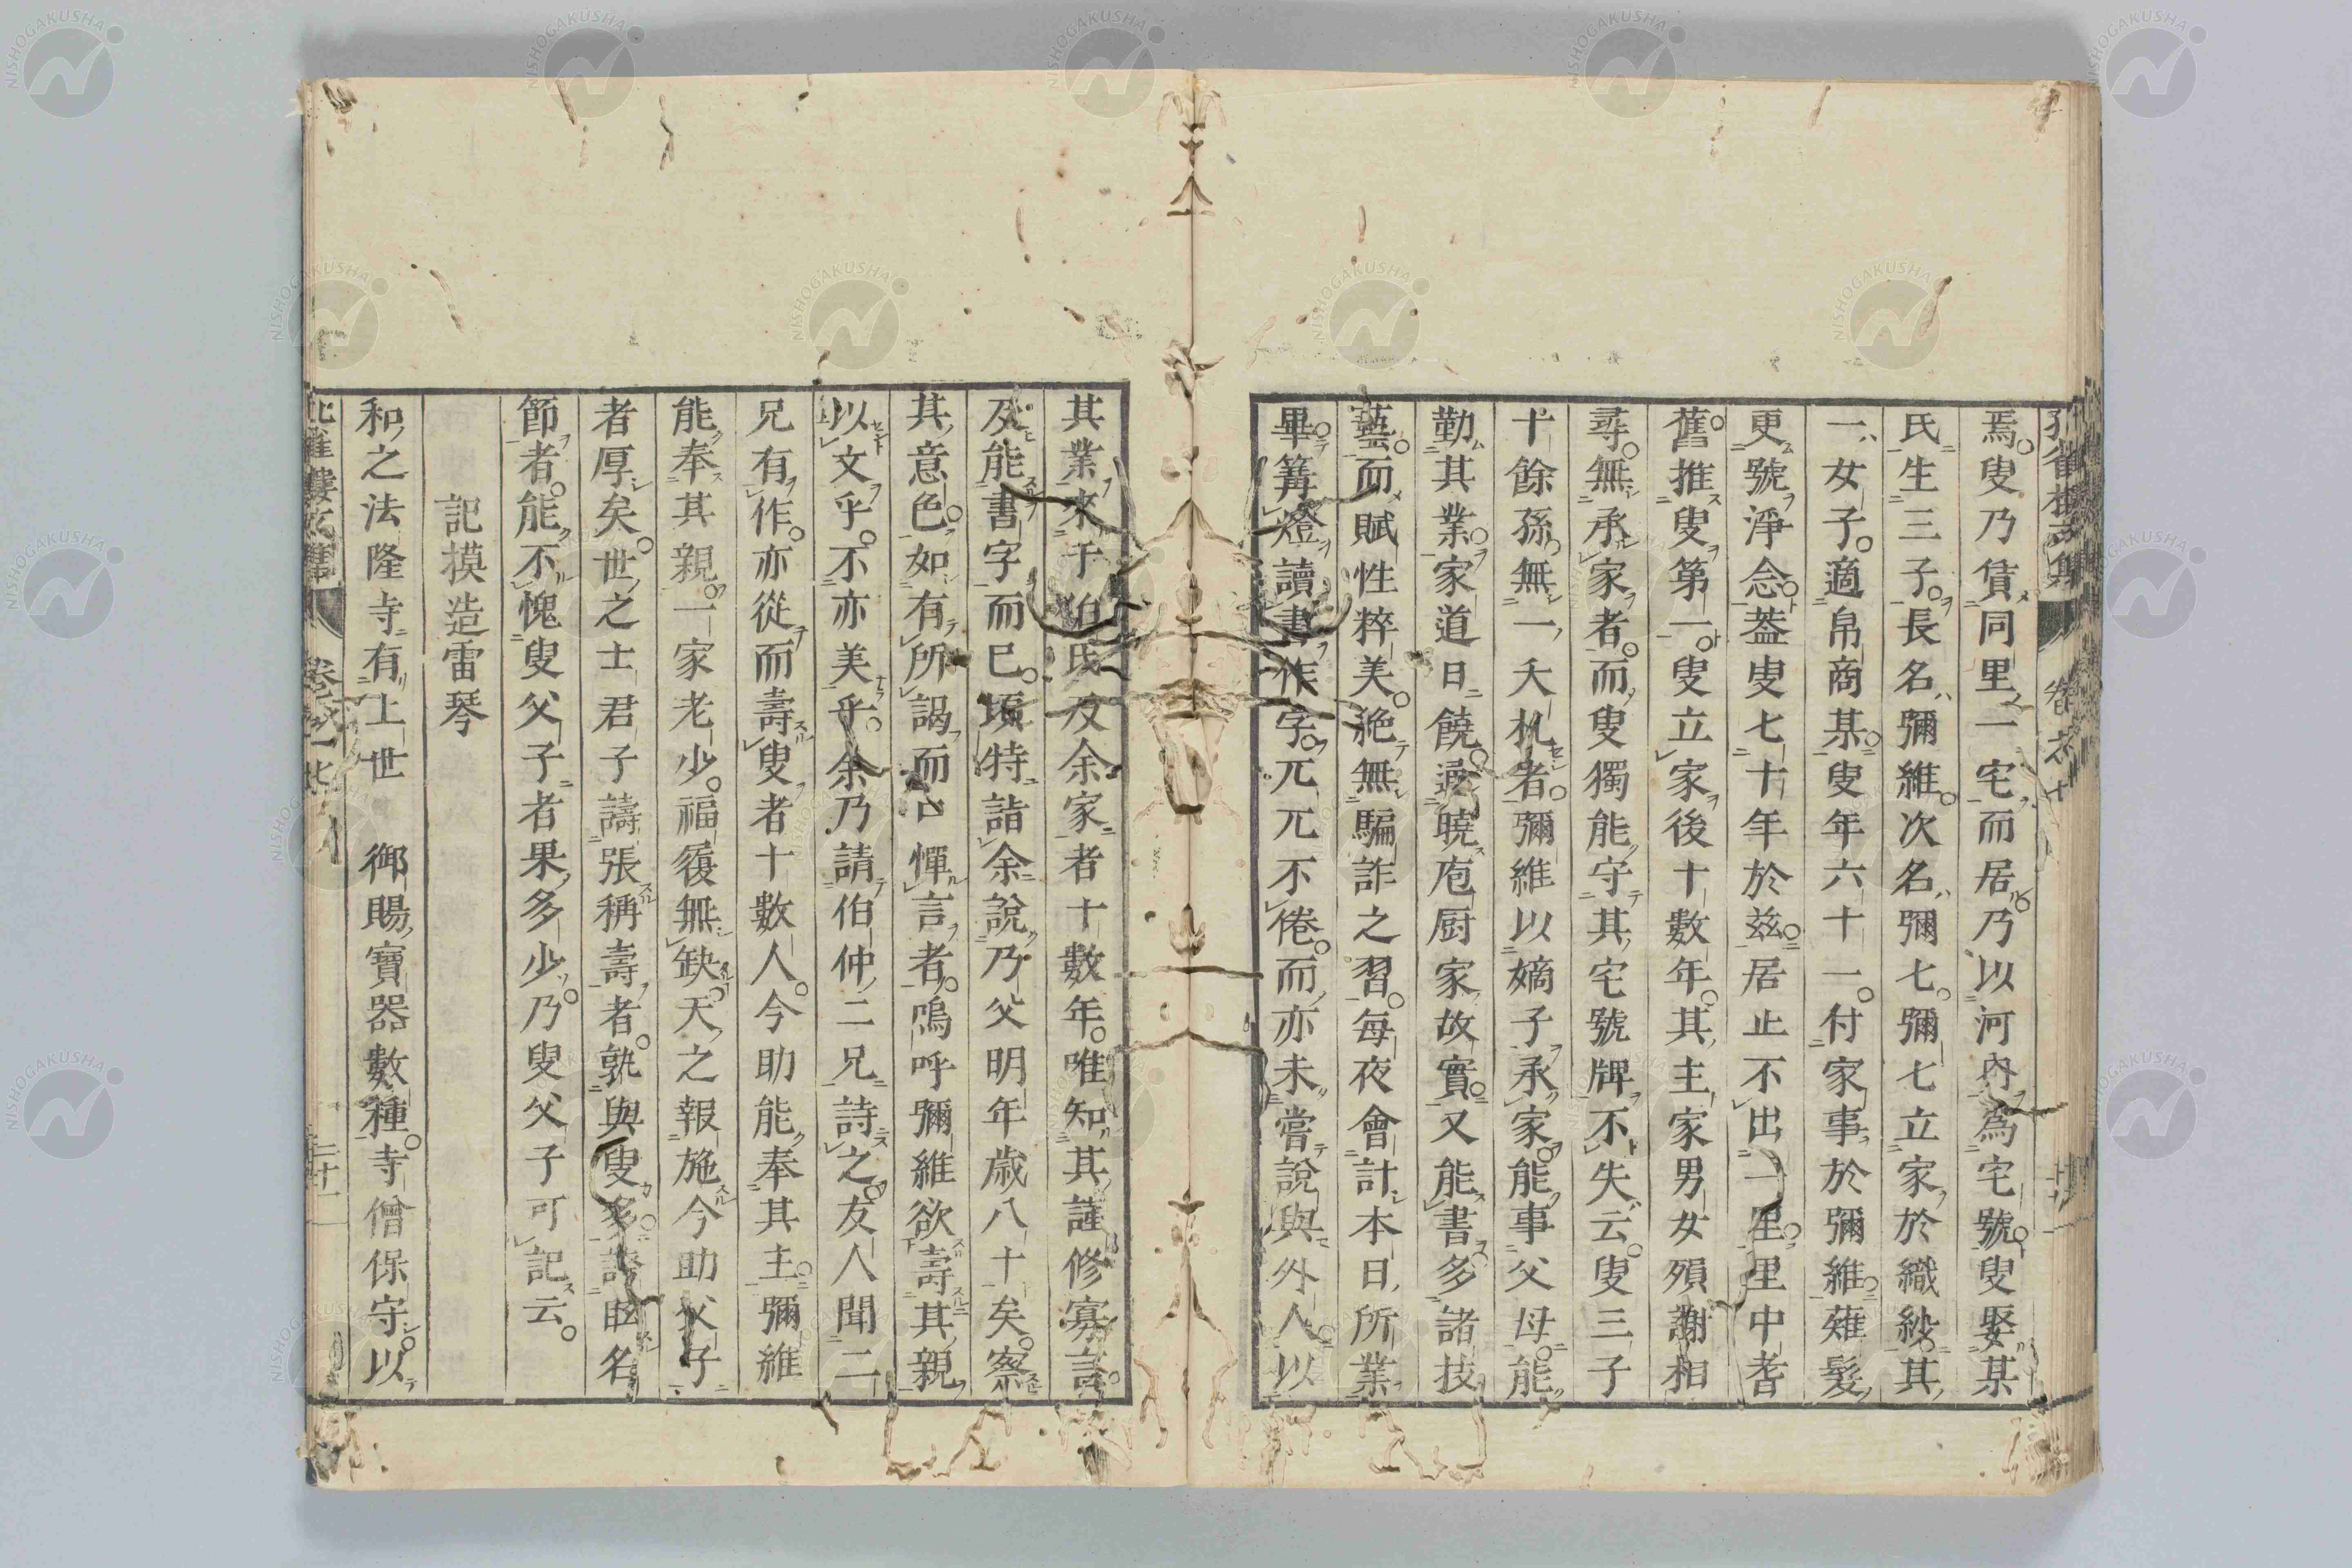 焉叟乃賃同里一宅而居乃以河內為宅號叟娶某
氏生三子長名彌維次名彌七彌七立家於織紗其
一女子適帛商某叟年六十一付家事於彌維薙髮
更號淨念葢叟七十年於茲居止不出一里里中耆
舊推叟第一叟立家後十數年其主家男女殞謝相
尋無承家者而叟獨能守其宅號牌不失云叟三子
十餘孫無一夭札者彌維以嫡子承家能事父母能
勤其業家道日饒遞曉庖厨家故實又能書多諸技
藝而賦性粹美絕無騙詐之習每夜會計本日所業
畢篝燈讀書作字兀兀不倦而亦未嘗說與外人以
其業來于伯氏及余家者十數年唯知其謹修寡言
及能書字而已頃特詣余說乃父明年歲八十矣察
其意色如有所謁而憚言者嗚呼彌維欲壽其親
以文乎不亦美乎余乃請伯仲二兄詩之友人聞二
兄有作亦從而壽叟者十數人今助能奉其主彌維
能奉其親一家老少福履無缺天之報施今助父子
者厚矣世之士君子譸張稱壽者孰與叟多誇眩名
節者能不愧叟父子者果多少乃叟父子可記云
記摸造雷琴
和之法隆寺有上世 御賜寶器數種寺僧保守以